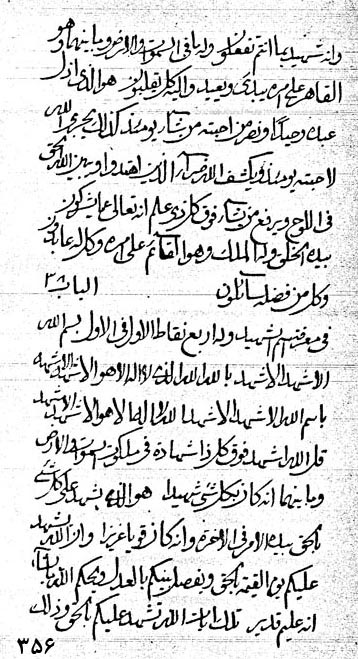 وانه شهيد بما انتم تفعلون وله ما في السموات والارض وما بينهما وهو
القاهر علی امره يبدئ ويعيد واليه كل تقلبون هو الذی انزل
عبده وحيدا ونصر من احبته من شاء يومئذ كذلك يجزی الله
لاحبته يومئذ ويكشف الله ضر الذين اهتدوا وبين الله الحق
في اللوح ويرفع من شاء فوق كل ذی علم انه تعالی عما يشركون
بيده الخلق وله الملك وهو القائم علی امره وكل له عابدون
وكل من فضله سائلون الباب ٣
في معرفة اسم الشهيد وله اربع نقاط الاول في الاول بسم الله
الاشهد الاشهد بالله الله لا اله الا هو الاشهد الاشهد
باسم الله الاشهد الاشهد الله لا اله الا هو الاشهد الاشهد
قل الله اشهد فوق كل ذا شهادة في ملكوت السموات والارض
وما بينهما انه كان بكل شئ شهيدا هو الذی يشهد علی كل شئ
بالحق بيده الامر في الاخرة وانه كان قويا عزيزا وان الله يشهد
عليكم يوم القيمة بالحق ويفصل بينكم بالعدل ويحكم الله
انه عليم قدير تلك ايات الله تشهد عليكم بالحق وذلك
٣٥۶